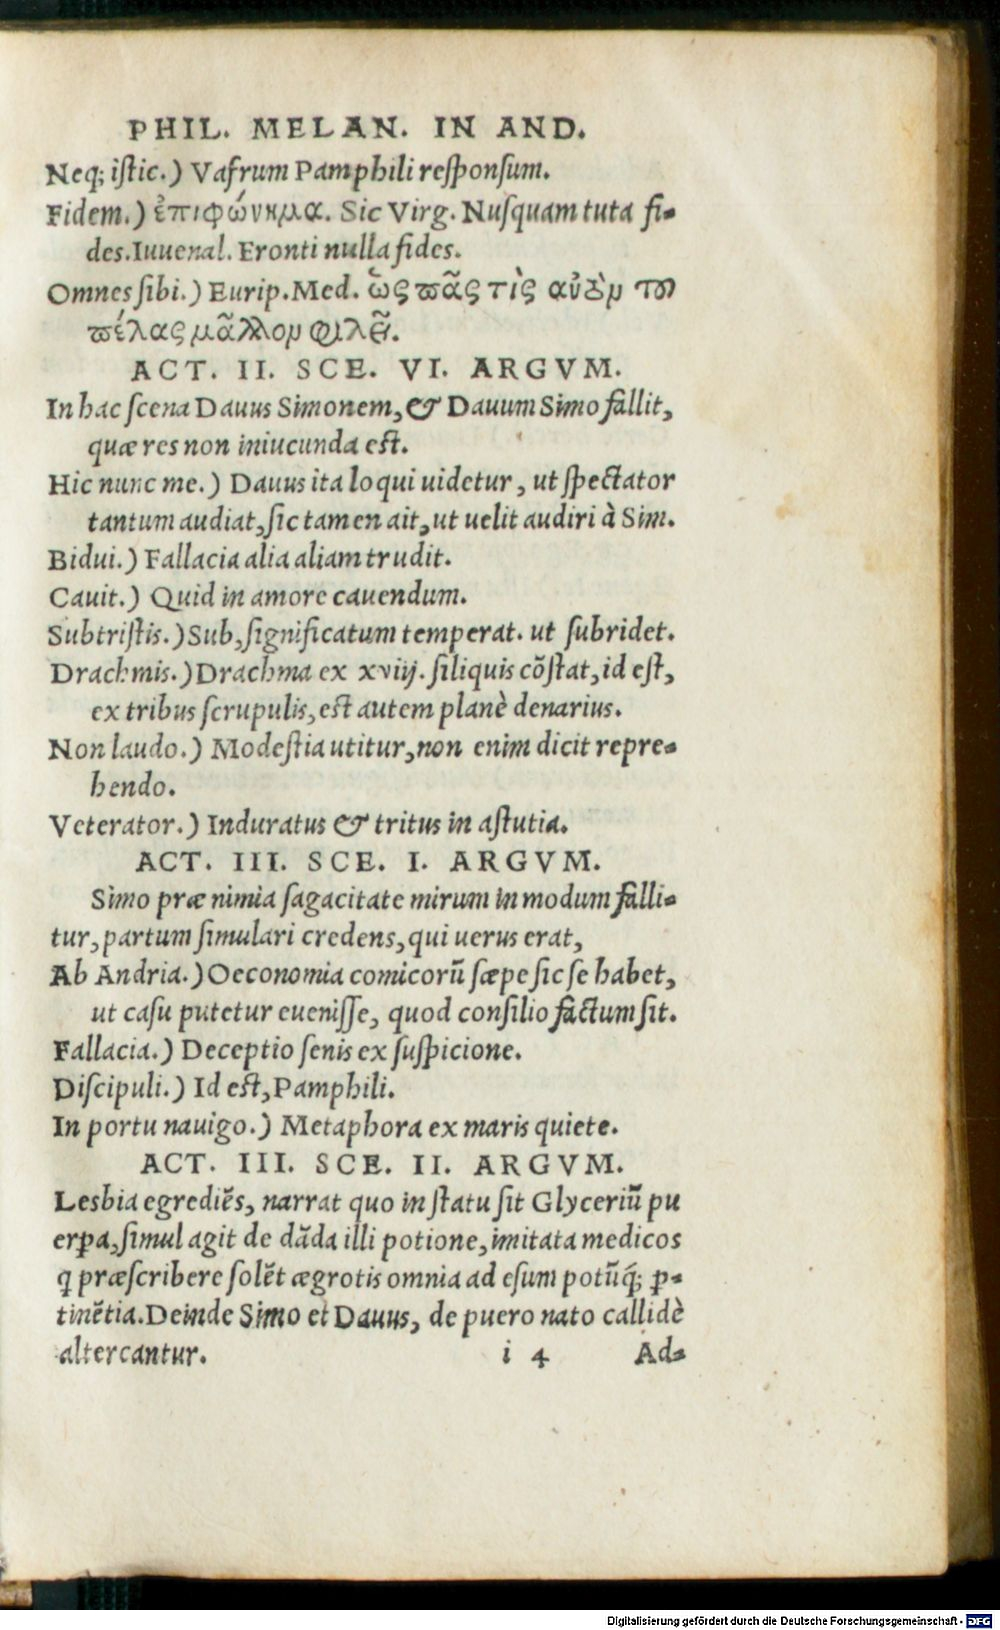 PHIL. MELAN. IN AND.
Neq; iſtic.) Vafrum Pamphili reſponſum.
Fidem.) ἐπιφώνημα. Sic Virg. Nuſquam tuta fi-
des. Iuuenal. Fronti nulla fides.
Omnes ſibi.) Eurip. Med. ὡς πᾶς τὶς αὑτὸν τοῦ
πέλας μᾶλλον φιλεῖ.
ACT. II. SCE. VI. ARGVM.
In hac ſcena Dauus Simonem, & Dauum Simo fallit,
quæ res non iniucunda eſt.
Hic nunc me.) Dauus ita loqui uidetur, ut ſpectator
tantum audiat, ſic tamen ait, ut uelit audiri à Sim.
Bidui.) Fallacia alia aliam trudit.
Cauit.) Quid in amore cauendum.
Subtriſtis.) Sub, ſignificatum temperat. ut ſubridet.
Drachmis.) Drachma ex xviij. ſiliquis cõſtat, id eſt,
ex tribus ſcrupulis, eſt autem planè denarius.
Non laudo.) Modeſtia utitur, non enim dicit repre-
hendo.
Veterator.) Induratus & tritus in aſtutia.
ACT. III. SCE. I. ARGVM.
Simo præ nimia ſagacitate mirum in modum falli-
tur, partum ſimulari credens, qui uerus erat,
Ab Andria.) Oeconomia comicorũ ſæpe ſic ſe habet,
ut caſu putetur eueniſſe, quod conſilio factum ſit.
Fallacia.) Deceptio ſenis ex ſuſpicione.
Diſcipuli.) Id eſt, Pamphili.
In portu nauigo.) Metaphora ex maris quiete.
ACT. III. SCE. II. ARGVM.
Lesbia egrediẽs, narrat quo in ſtatu ſit Glyceriũ pu
erꝑa, ſimul agit de dãda illi potione, imitata medicos
q præſcribere ſolẽt ægrotis omnia ad eſum potũq́; ꝑ-
tinẽtia. Deinde Simo et Dauus, de puero nato callidè
altercantur. i 4 Ad-
Digitalisierung gefördert durch die Deutsche Forschungsgemeinschaft - DFG